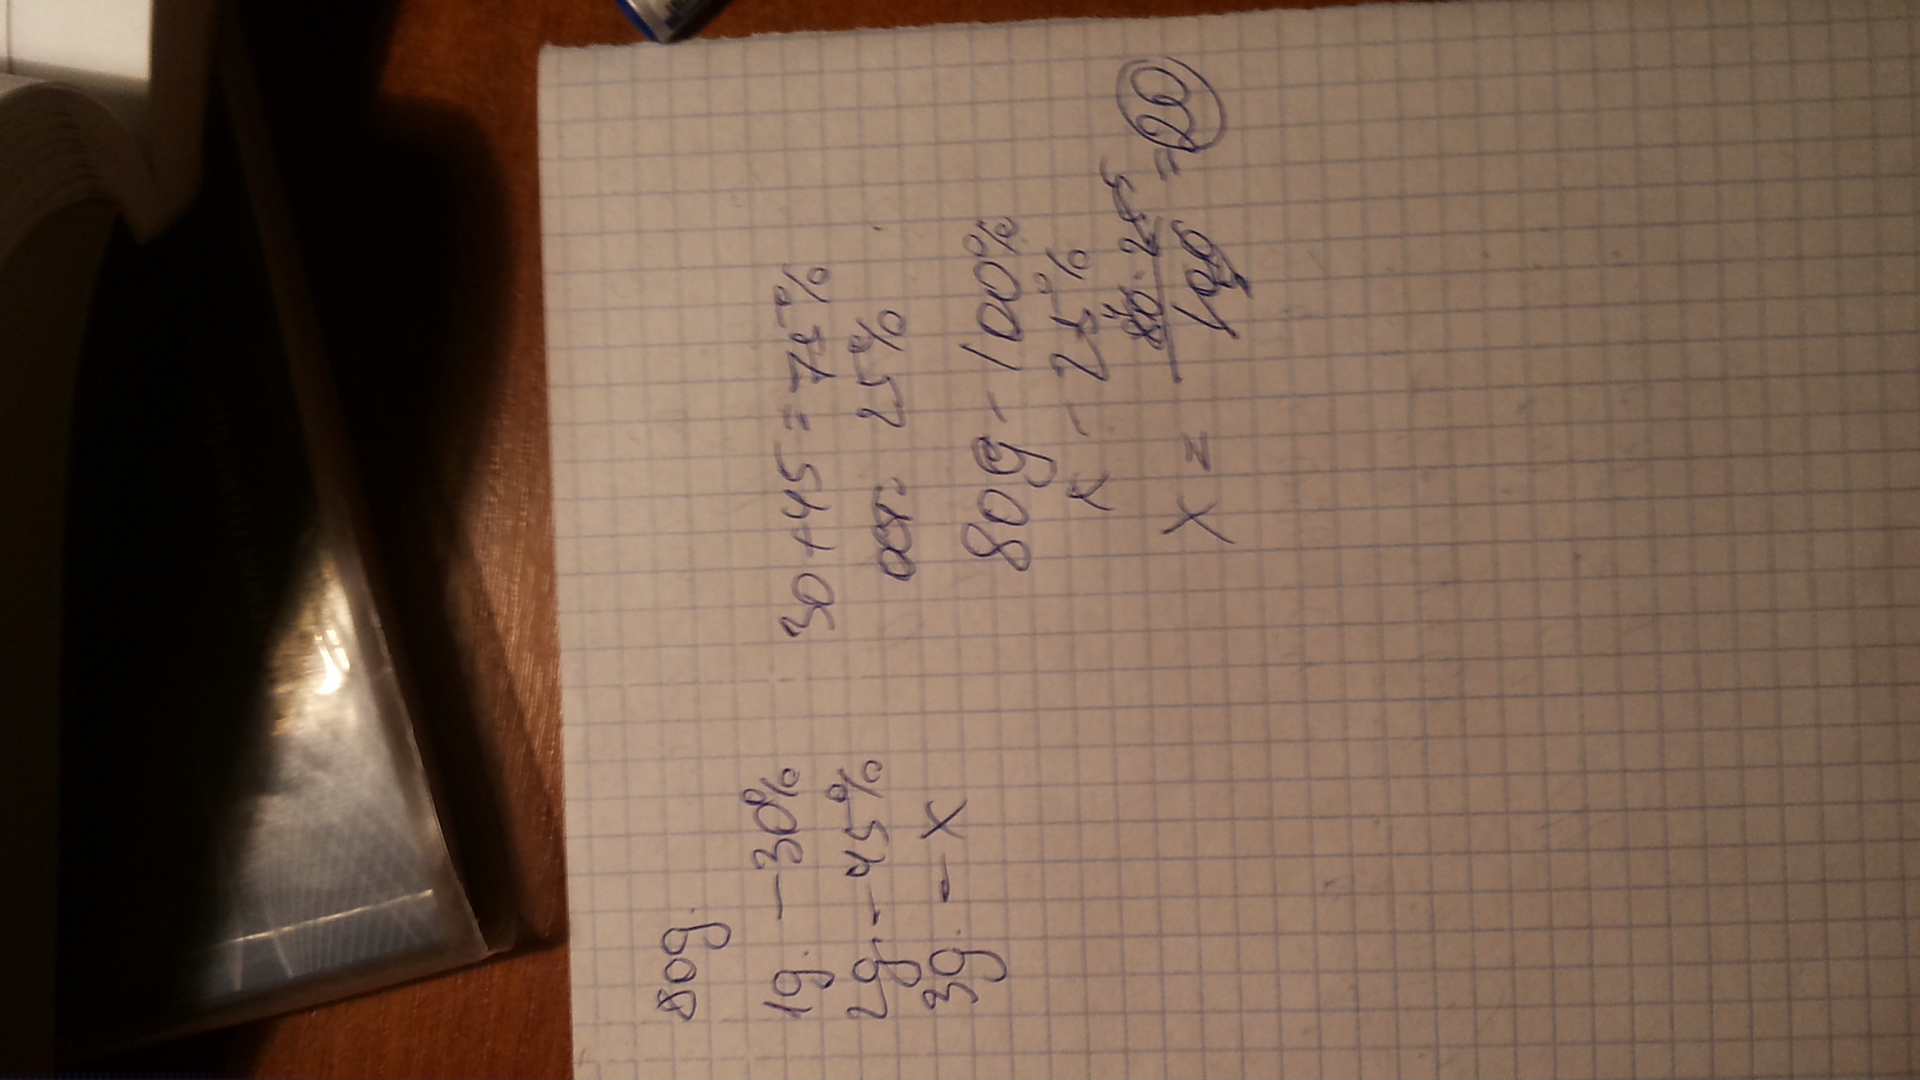 80g.
1g. — 30%
2g. — 45%
3g. — x
30 + 45 = 75%
ост. 25%
80g - 100%
x - 25%
x = 80 · 25 / 100 = 20